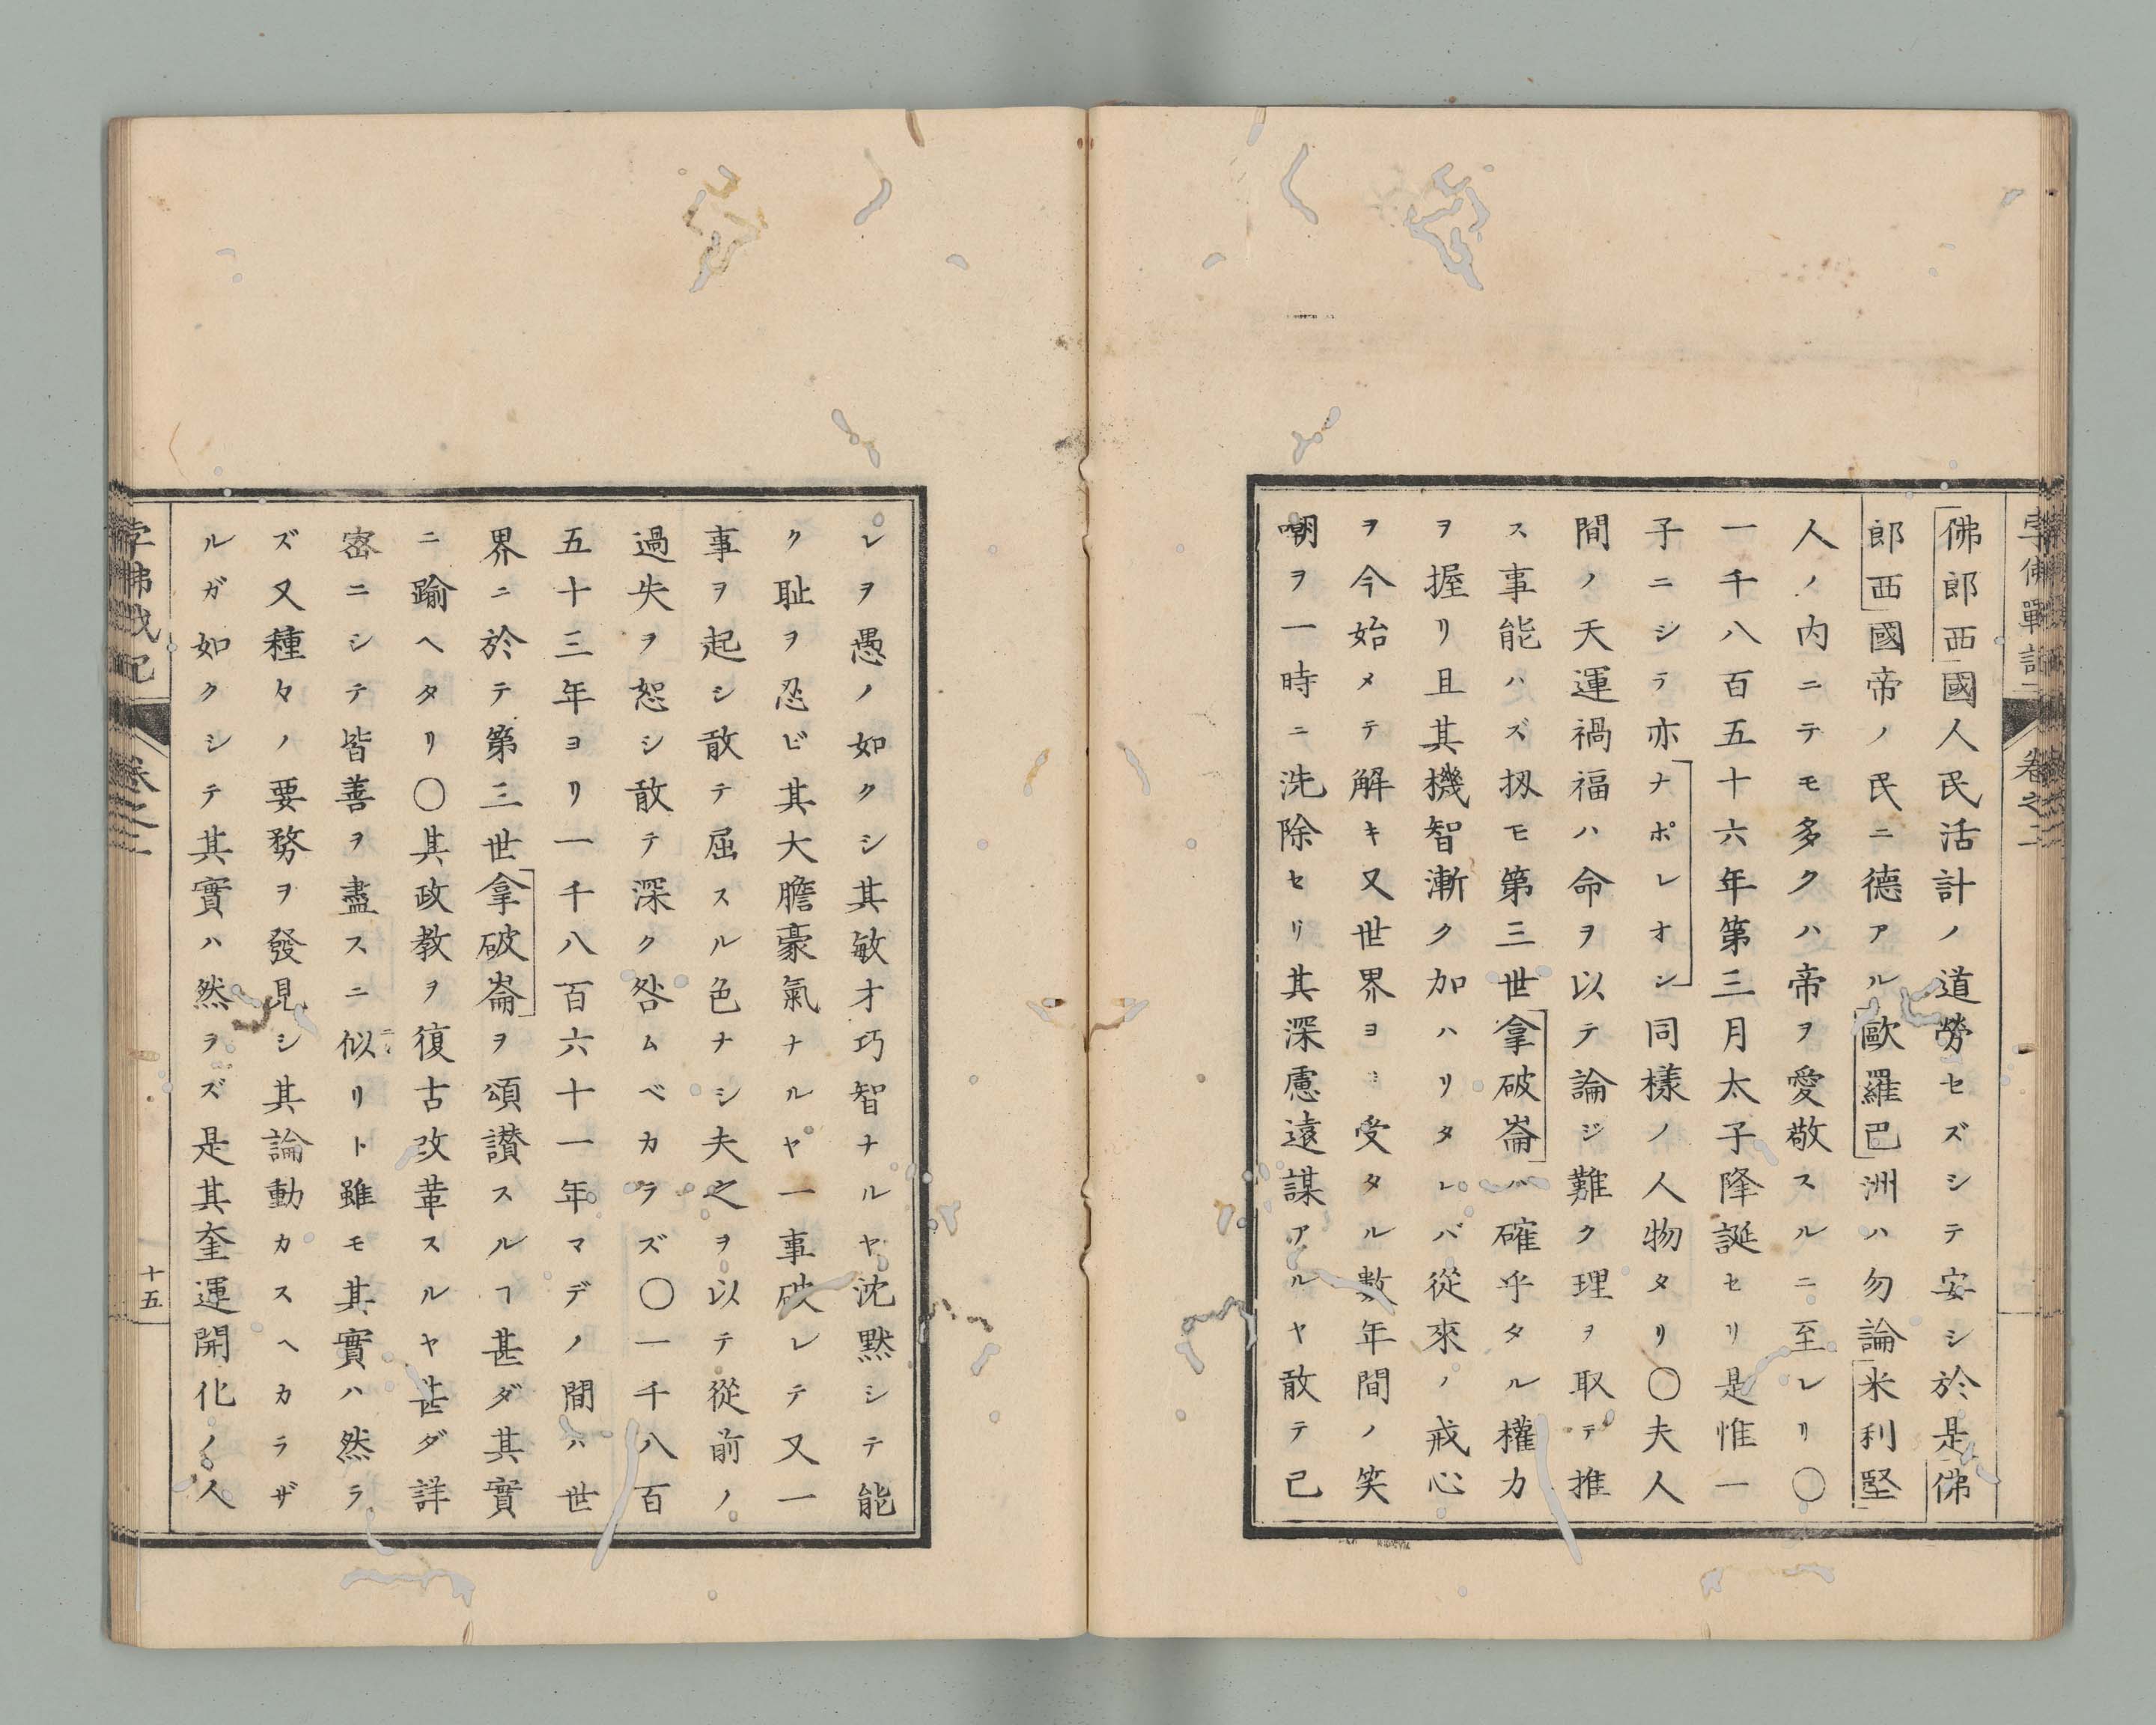 孛佛戰記
卷之二
佛郎西國人民活計ノ道勞セズシテ安シ於是佛
郎西國帝ノ民ニ德アル歐羅巴洲ハ勿論米利堅
人ノ内ニテモ多クハ帝ヲ愛敬スルニ至レリ〇
一千八百五十六年第三月太子降誕セリ是惟一
子ニシテ亦ナポレオシ同樣ノ人物タリ〇夫人
間ノ天運禍福ハ命ヲ以テ論ジ難ク理ヲ取テ推
ス事能ハズ扨モ第三世拿破崙ハ確乎タル權力
ヲ握リ且其機智漸ク加ハリタレバ從來ノ戒心
ヲ今始メテ解キ又世界ヨリ受タル數年間ノ笑
嘲ヲ一時ニ洗除セリ其深慮遠謀アルヤ敢テ己
レヲ愚ノ如クシ其敏才巧智ナルヤ沈黙シテ能
ク耻ヲ忍ビ其大膽豪氣ナルヤ一事破レテ又一
事ヲ起シ敢テ屈スル色ナシ夫之ヲ以テ從前ノ
過失ヲ恕シ敢テ深ク咎ムベカラズ〇一千八百
五十三年ヨリ一千八百六十一年マデノ間ハ世
界ニ於テ第三世拿破崙ヲ頌讃スルヿ甚ダ其實
ニ踰ヘタリ〇其政教ヲ復古改革スルヤ甚ダ詳
密ニシテ皆善ヲ盡スニ似リト雖モ其實ハ然ラ
ズ又種々ノ要務ヲ發見シ其論動カスヘカラザ
ルガ如クシテ其實ハ然ラズ是其奎運開化ノ人
孛佛戰記
卷之二
十五